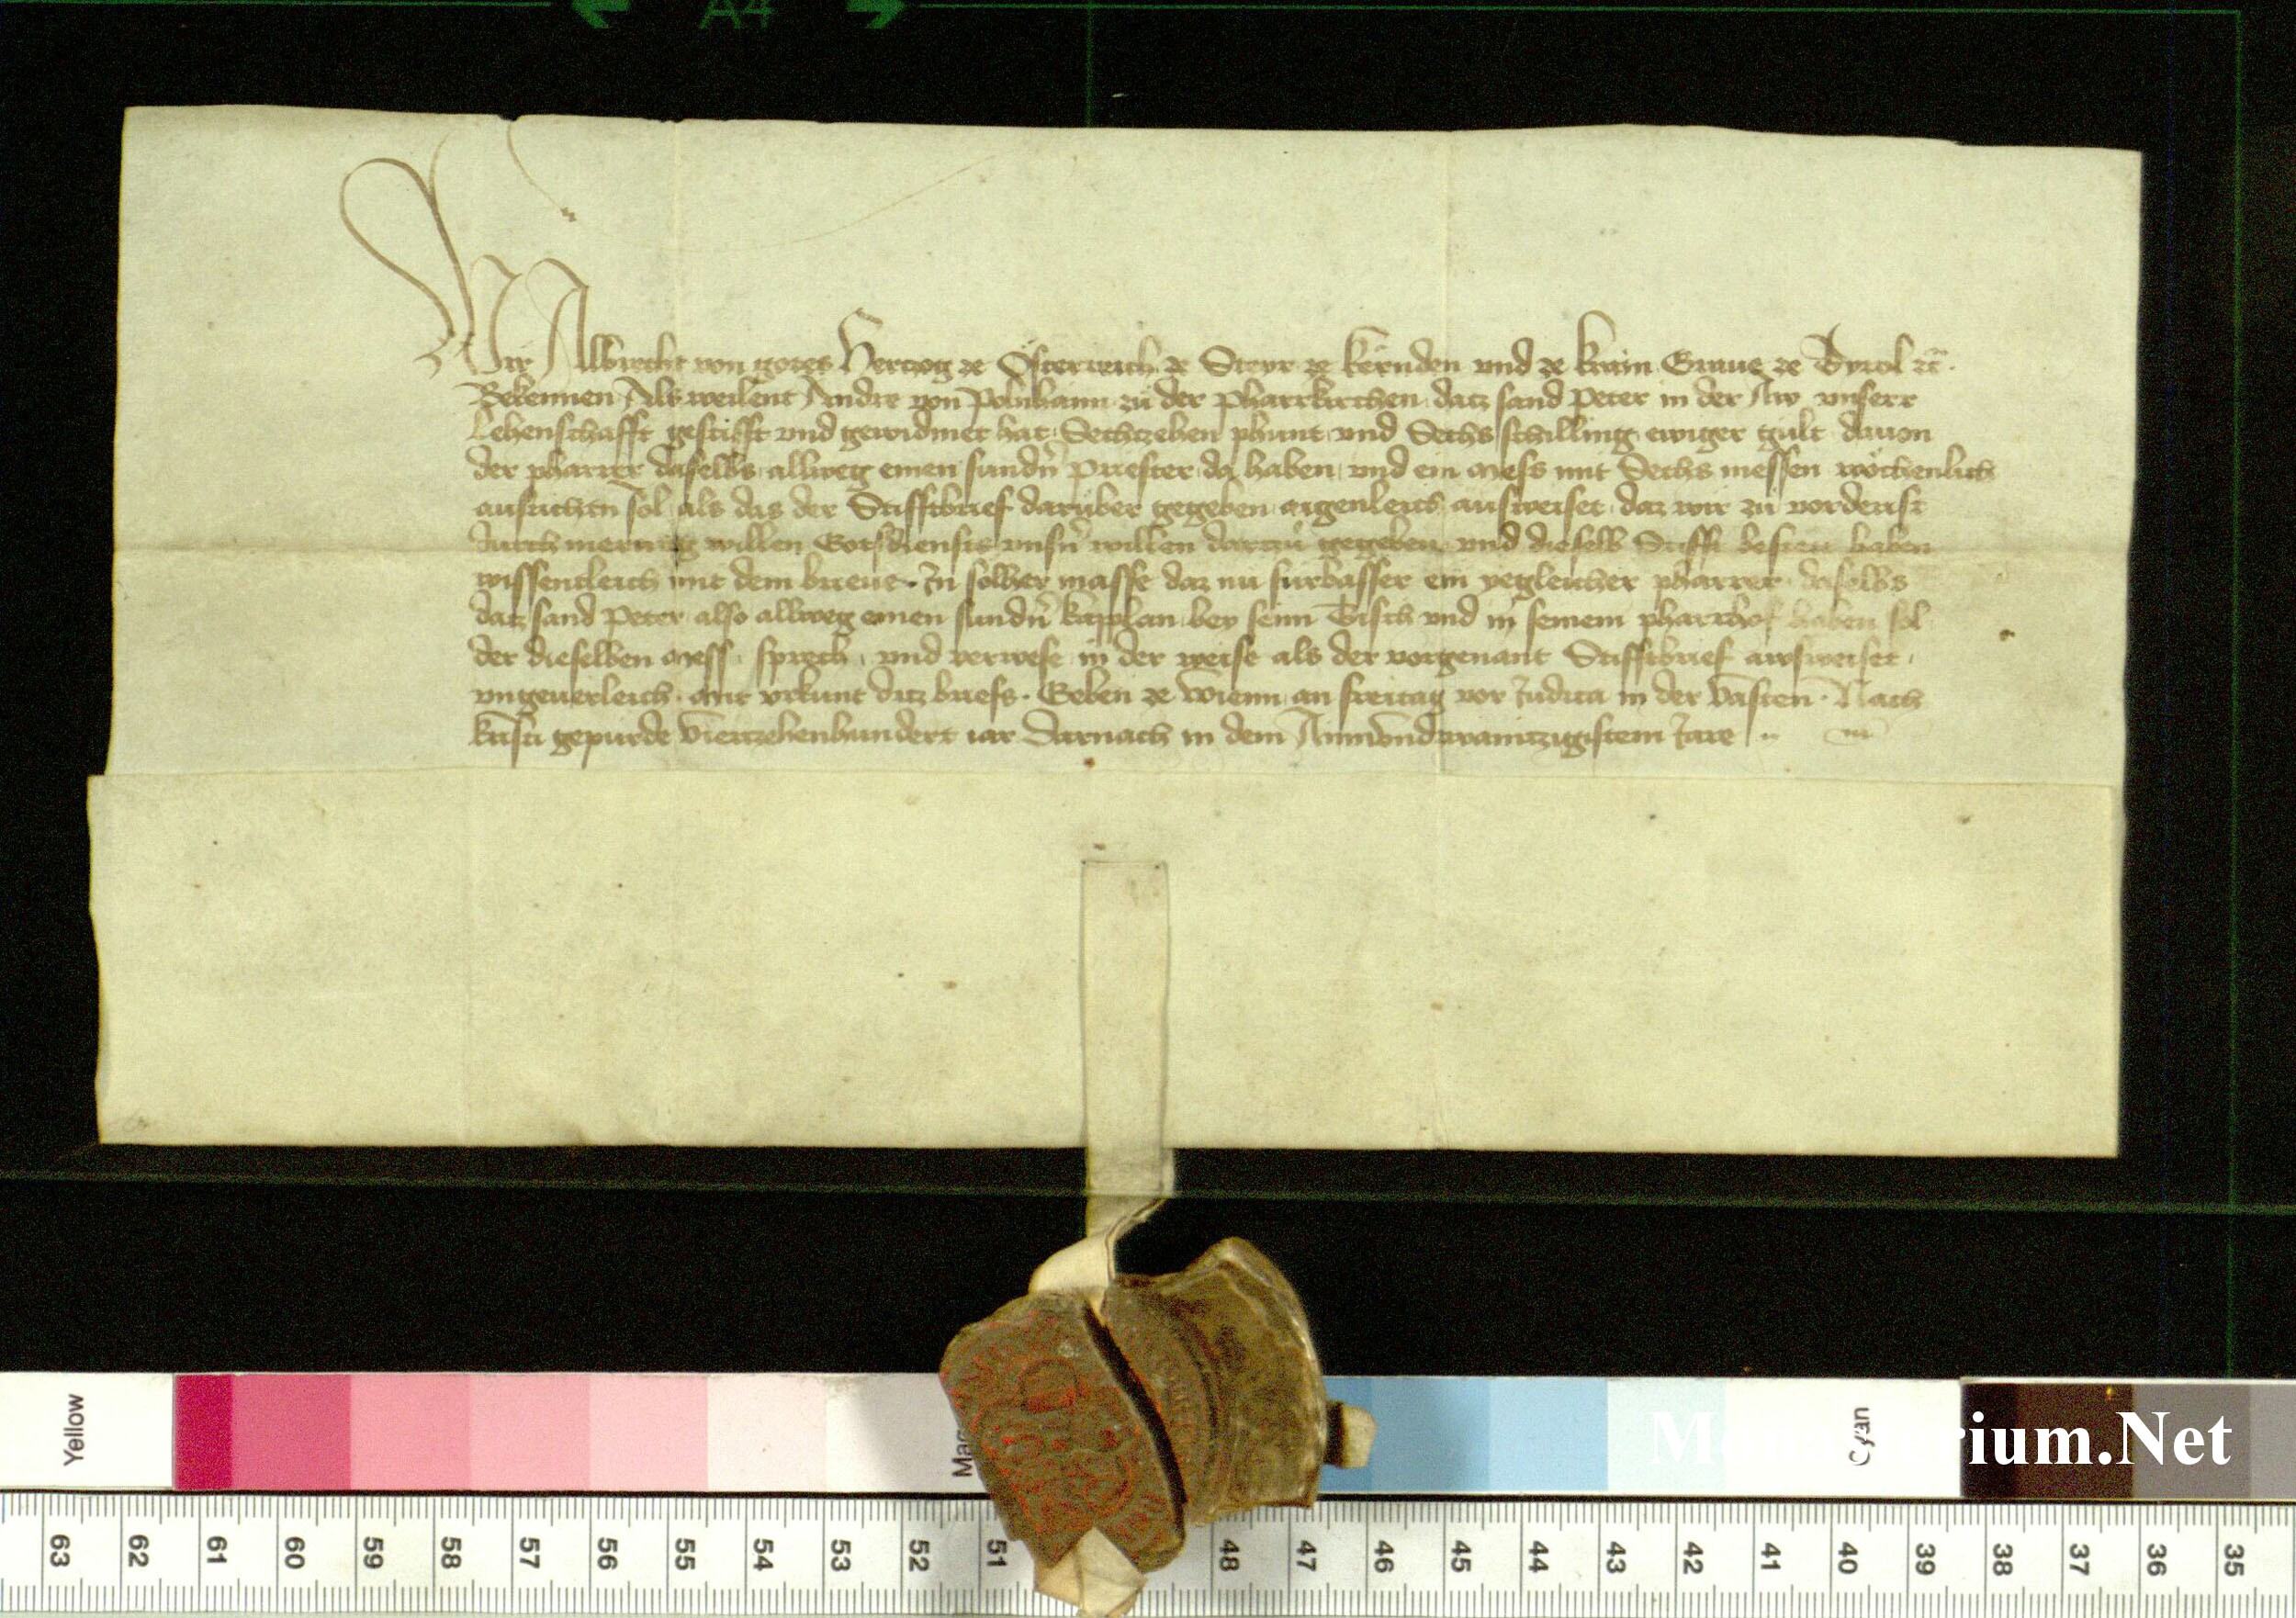 A4
Wir Albrecht von gotes Hertzog ze Österreich ze Steyr ze kërnden vnd ze krain Graue ze Tyrol ꝛc̃.
Bekennen Als weilent Andre von Polnhaim zu der Pharrkirchen datz sand Peter in der Aw vnserr
Lehenschafft gestifft vnd gewidmet hat Sechtzehen phunt vnd Sechs schilling ewiger gült dauon
der pharrer daselbs allweg einen sundn̄ Priester da haben vnd ein Mess mit Sechs messen wöchenlich
ausrichtn sol als das der Stifftbrief darüber gegeben aigenleich ausweiset daz wir zu vordrist
durch merung willen Gotsdiensts vnsn̄ willen dartzu gegeben vnd dieselb Stifft bestett haben
wissentleich mit dem brieue. In solher masse daz nu fürbasser ein yegleicher pharrer daselbs
datz sand Peter also allweg einen sundn̄ kapplan bey seinn Tisch vnd in seinem pharrhof haben sol
der dieselben Mess sprech vnd verwese in der weise als der vorgenant Stifftbrief ausweiset
vngeuerleich. Mit vrkunt ditz briefs. Geben ze Wienn an freitag vor Judica in der Vasten. Nach
kristi gepurde Viertzehenhundert iar Darnach in dem Ainvndzwaintzigistem Jare
Yellow
Cyan
Monasterium.Net
63 62 61 60 59 58 57 56 55 54 53 52 51 48 47 46 45 44 43 42 41 40 39 38 37 36 35